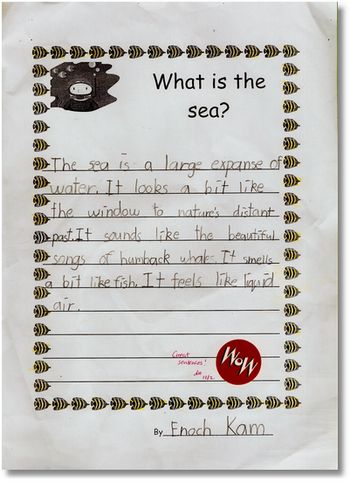 What is the
sea?
The sea is a large expanse of
water. It looks a bit like
the window to nature's distant
past. It sounds like the beautiful
songs of humback whales. It smells
a bit like fish. It feels like liquid
air.
Great
sentences!
WOW
By Enoch Kam